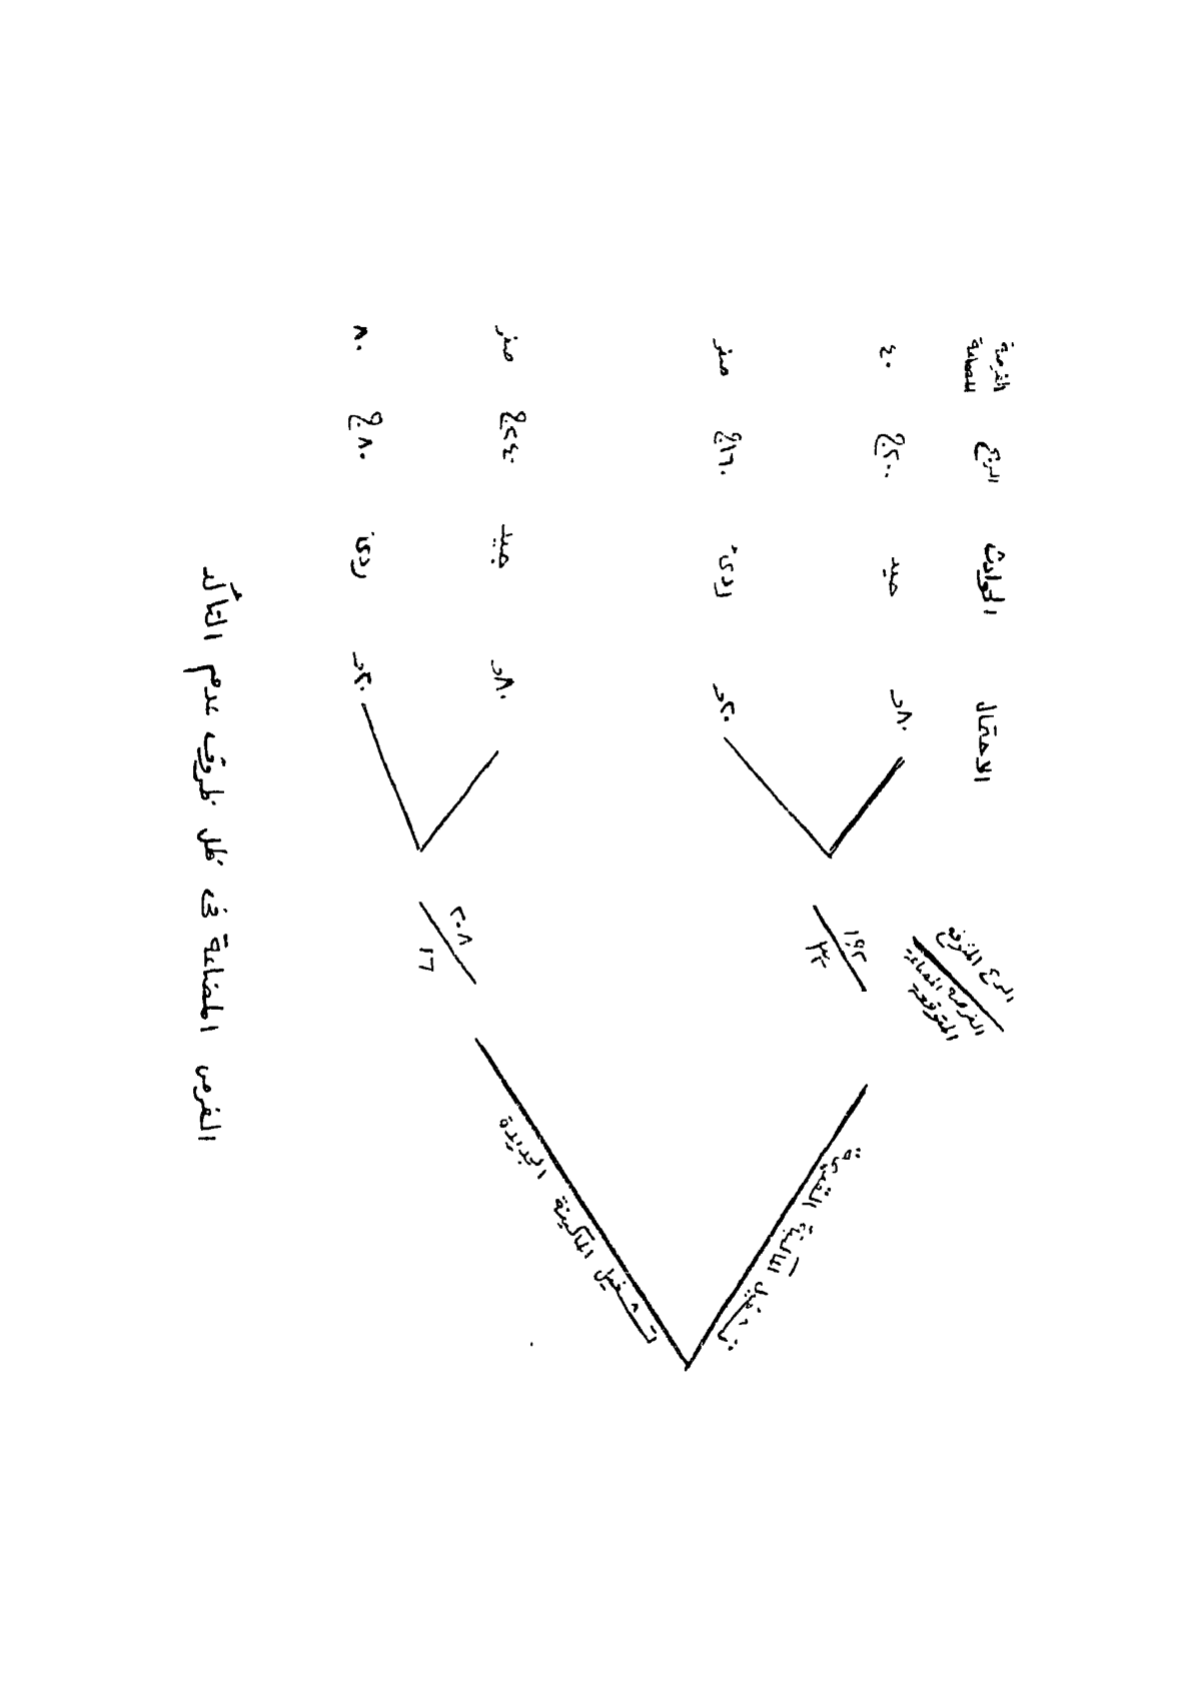 الربح المتوقع
الفرصة المضاعة
المتوقعة
الاحتمال
الحوادث
الربح
الفرصة
المضاعة
تشغيل الماكينة القديمة
١٩٢
٣٢
٨٠ر
جيد
٢٠٠ج
٤٠
٢٠ر
ردىء
١٦٠ج
صفر
تشغيل الماكينة الجديدة
٢٠٨
١٦
٨٠ر
جيد
٢٤٠ج
صفر
٢٠ر
ردىء
٨٠ج
٨٠
الفرص المضاعة فى ظل ظروف عدم التأكد